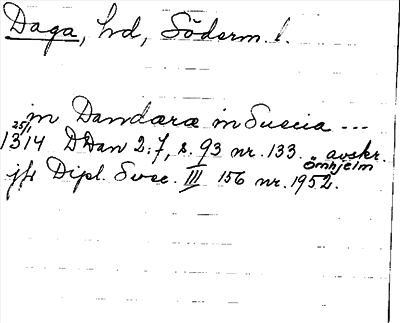 Daga, hd, Söderm. l.
in Dandaræ in Suecia ---
1314 25/1 DDan 2:7, s. 93 nr. 133. avskr. Ömhjelm
jfr Dipl. Svec. III 156 nr. 1952.